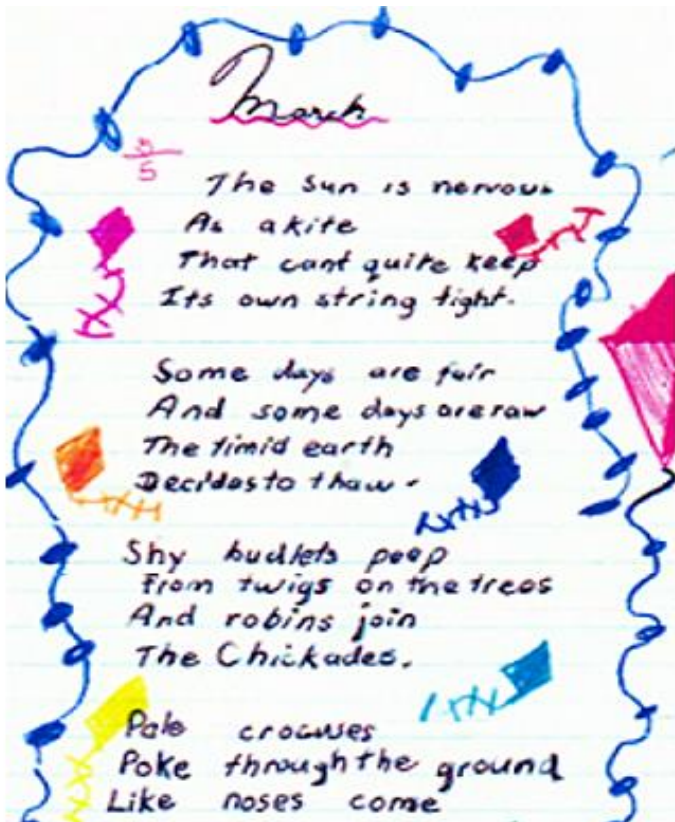 March
5/5
The sun is nervous
As a kite
That cant quite keep
Its own string tight.
Some days are fair
And some days are raw
The timid earth
Decides to thaw.
Shy budlets peep
From twigs on the trees
And robins join
The Chickades.
Pale crocuses
Poke through the ground
Like noses come